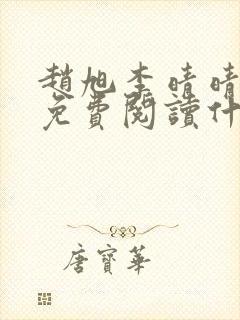 趙旭李晴晴
免費閱讀什
唐寶華